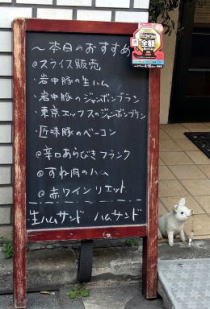 ～本日のおすすめ
@スライス販売
・岩中豚の生ハム
・岩中豚のジャンボンブラン
・東京エックスのジャンボンブラン
・匠味豚のベーコン
@辛口あらびきフランク
@すね肉のハム
@赤ワインリエット
生ハムサンド ハムサンド